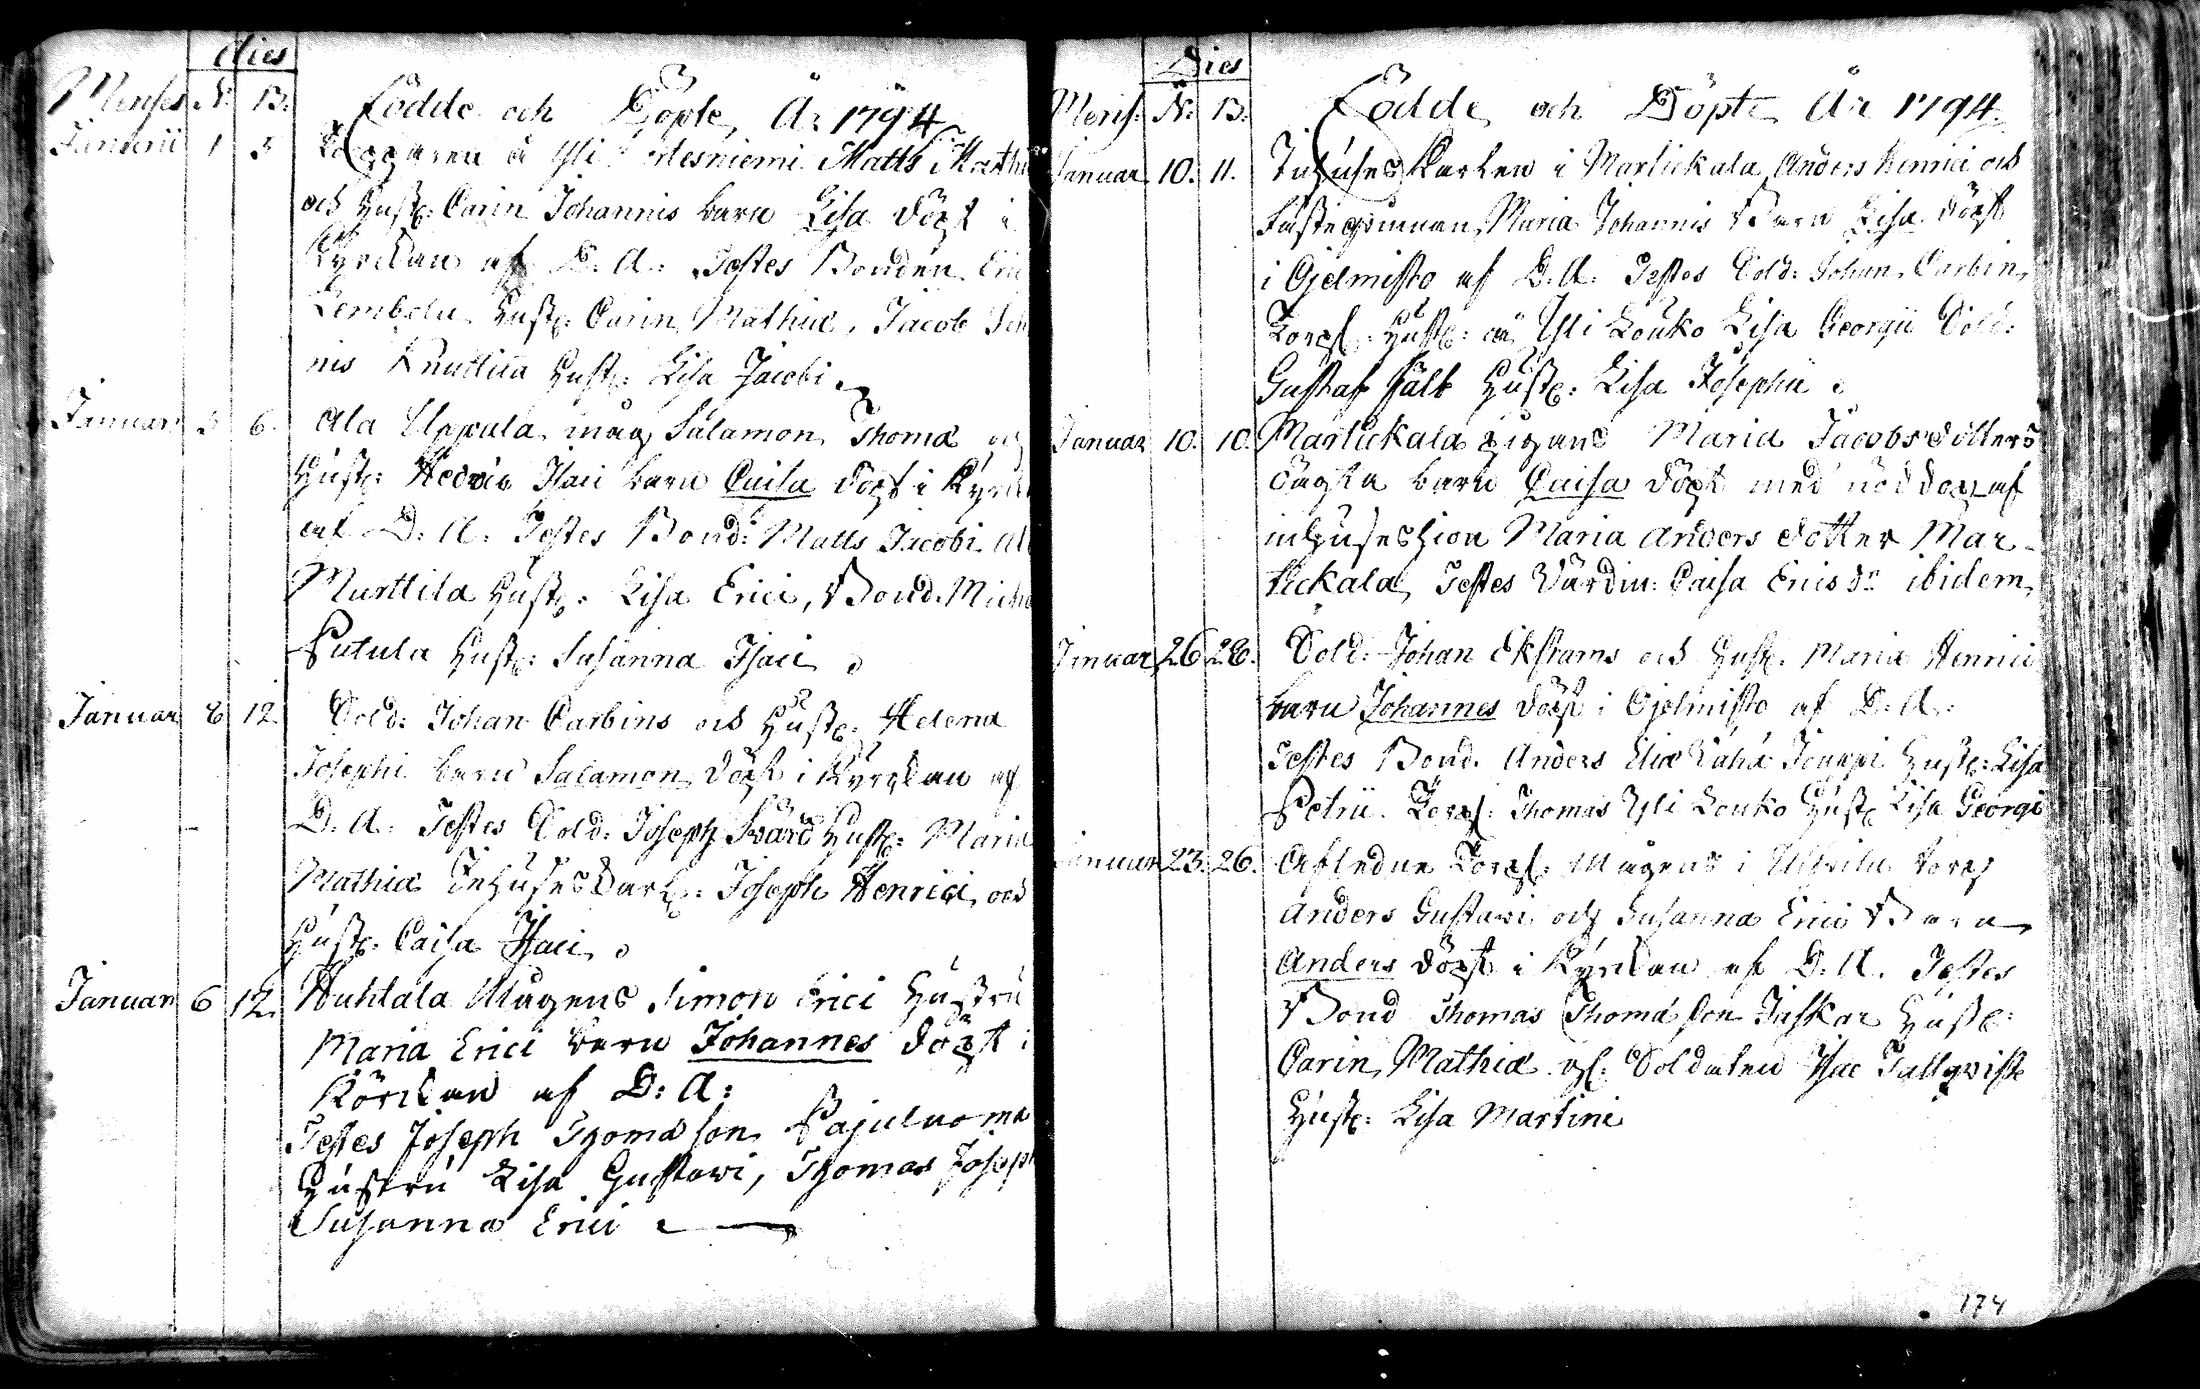 Dies
Menses N. B. Födde och Döpte År 1794
Januarii 1 5 Torpparen å Yli Matts Mathi
och Hust: Carin Johannis barn Lisa döpt i
Kyrckan af D. A: Testes Bonden Eric
Lembola Hust: Carin Mathiæ, Jacob Joh
nis Knuttila Hust: Lisa Jacobi
Januar 5 6. Ala Uppula måg Salamon Thomæ och
Hust: Hedvig Isaci barn Caisa döpt i Kyrck
af D. A. Testes Bond: Matts Jacobi Al
Marttila Hust: Lisa Erici, Bond. Mich
Putula Hust: Susanna Isaci
Januar 8 12. Sold: Johan Carbins och Hust: Helena
Josephi barn Salamon döpt i Kyrckan af
D. A: Testes Sold: Joseph Svärd Hust: Maria
Mathiæ Inhuses Karl: Joseph Henrici och
Hust: Caisa Isaci
Januar 6 12. Huhtala Mågens Simon Erici Hustru
Maria Erici barn Johannes döpt i
Körckan af D: A:
Testes Joseph Thomæ son Pajuluoma
Hustru Lisa Gustavi, Thomas Joseph
Susanna Erici
Dies
Mens: N: B. Födde och Döpte År 1794.
Januar 10. 11. Inhuses Karlen i Martickala Anders Henrici och
Fästeqvinnan Maria Johannis Barn Lisa döpt
i Gjelmisto af D. A. Testes Sold: Johan Carbin,
Torp: Hust: å Yli Louko Lisa Georgii Sold:
Gustaf Fält Hust: Lisa Josephi
Januar 10. 10. Martickala pigans Maria Jacobsdotters
oägta barn Caisa döpt med nöddop af
inhuseshion Maria Andersdotter Mar-
tickala, Testes Värdin: Caisa Erisdr ibidem,
Januar 26 28. Sold: Johan Ekstrams och Hust: Maria Henrici
barn Johannes döpt i Gjelmisto af D. A.
Testes Bond. Anders Eliæ Vähä Jouppi Hust: Lisa
Petrii. Torp: Thomas Yli Louko Hust: Lisa Georgi
Januar 23. 26. Afledne Torp: Mågens i torp
Anders Gustavi och Susanna Erici Barn
Anders döpt i Kyrckan af D. A. Testes
Bond Thomas Thomæ son Juskar Hust:
Carin Mathiæ Soldaten Isac Tallqvist
Hust: Lisa Martini
174